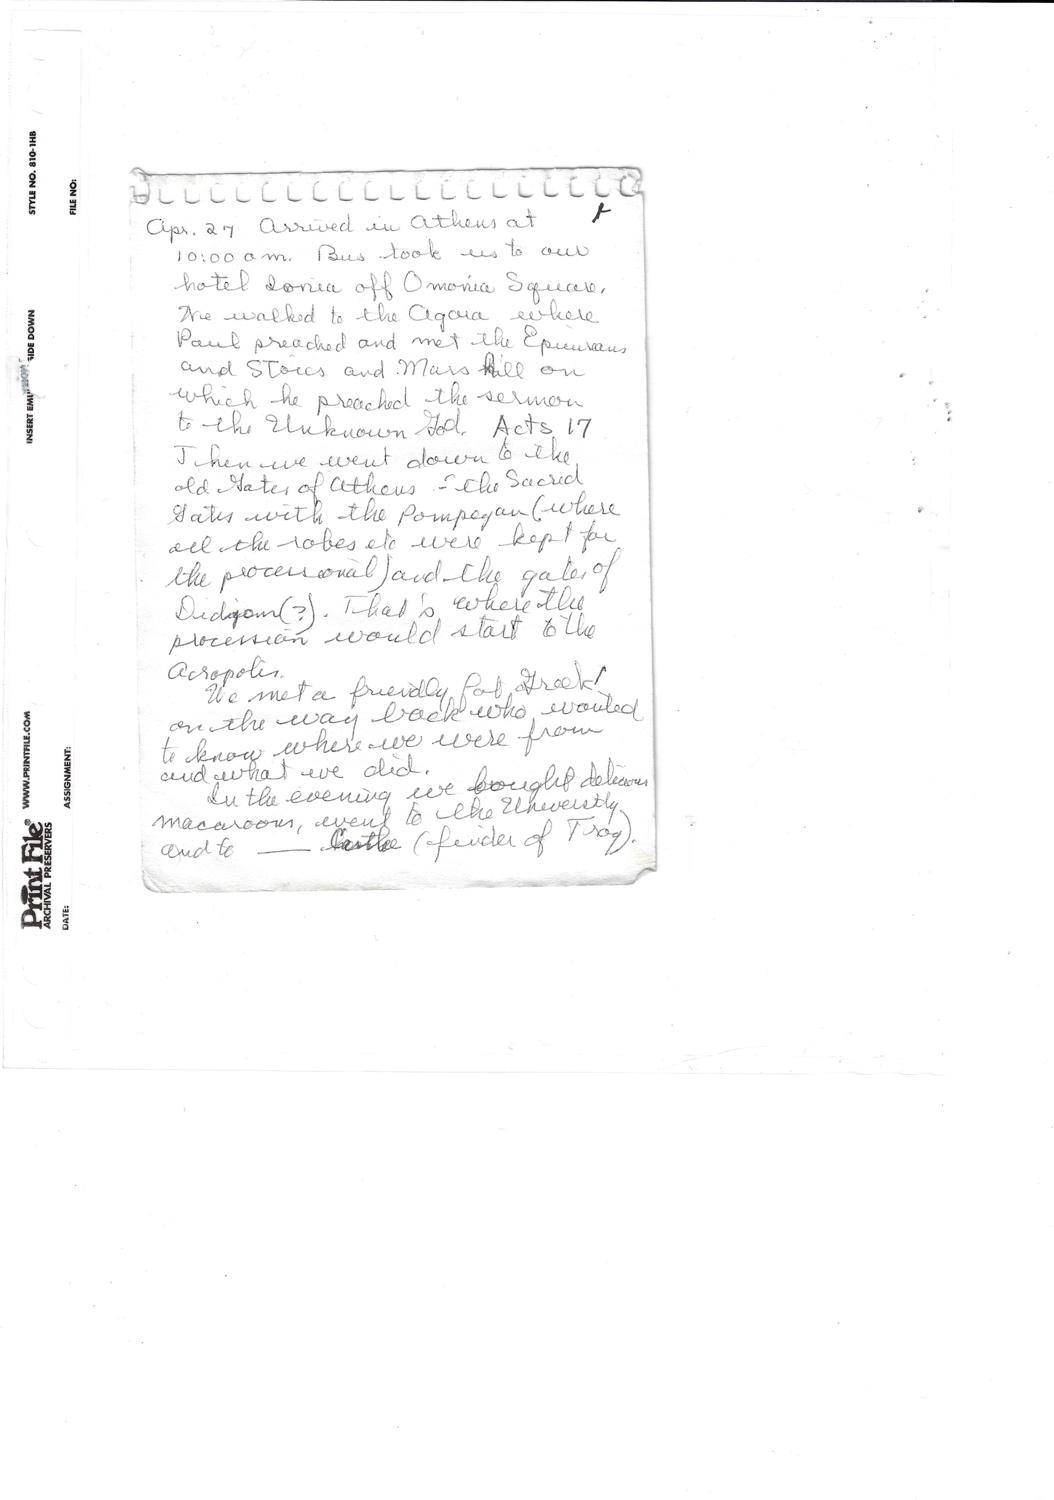 STYLE NO. 810-1HB
FILE NO:
INSERT SIDE DOWN
WWW.PRINTFILE.COM
ASSIGNMENT:
Print File®
ARCHIVAL PRESERVERS
DATE:
Apr. 27 Arrived in Athens at
10:00 a m. Bus took us to our
hotel Ionia off Omonia Square.
We walked to the Agora where
Paul preached and met the Epicureans
and Stoics and Mars hill on
which he preached the sermon
to the Unknown God. Acts 17
Then we went down to the
old Gates of Athens - the Sacred
Gates with the Pompeyan (where
all the robes etc were kept for
the processional) and the gates of
(?). That's where the
procession would start to the
Acropolis.
We met a friendly fat Greek
on the way back who wanted
to know where we were from
and what we did.
In the evening we bought delicious
macaroons, went to the University
and to —— Castle (finder of Troy).